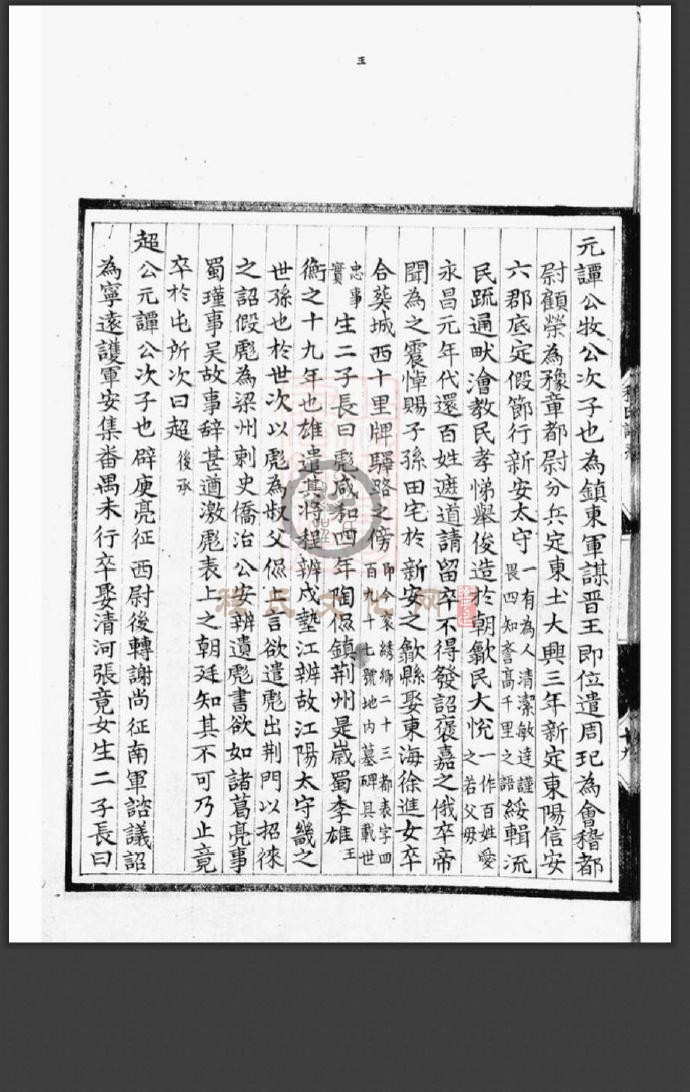 王
元譚公牧公次子也為鎮東軍謀晋王即位遣周玘為會稽都
尉顧榮為豫章都尉分兵定東土大興三年新定東陽信安
六郡底定假節行新安太守一有為人清潔敏達謹畏四知訾高千里之語綏輯流
民疏通畎澮教民孝悌舉俊造於朝歙民大悅一作百姓愛之若父母
永昌元年代還百姓遮道請留卒不得發詔褒嘉之俄卒帝
聞為之震悼賜子孫田宅於新安之歙縣娶東海徐進女卒
合葬城西十里牌驛路之傍即今袞綉鄉二十三都表字四百九十七號地內墓碑具載世
忠事實生二子長曰彪咸和四年陶侃鎮荆州是嵗蜀李雄王
衡之十九年也雄遣其將程辨戍墊江辨故江陽太守畿之
世孫也於世次以彪為叔父侃上言欲遣彪出荆門以招徠
之詔假彪為梁州刺史僑治公安辨遺彪書欲如諸葛亮事
蜀瑾事吳故事辞甚遒激彪表上之朝廷知其不可乃止竟
卒於屯所次曰超後承
超公元譚公次子也辟庾亮征西尉後轉謝尚征南軍諮議詔
為寧遠護軍安集番禺未行卒娶清河張竟女生二子長曰
程氏文化网